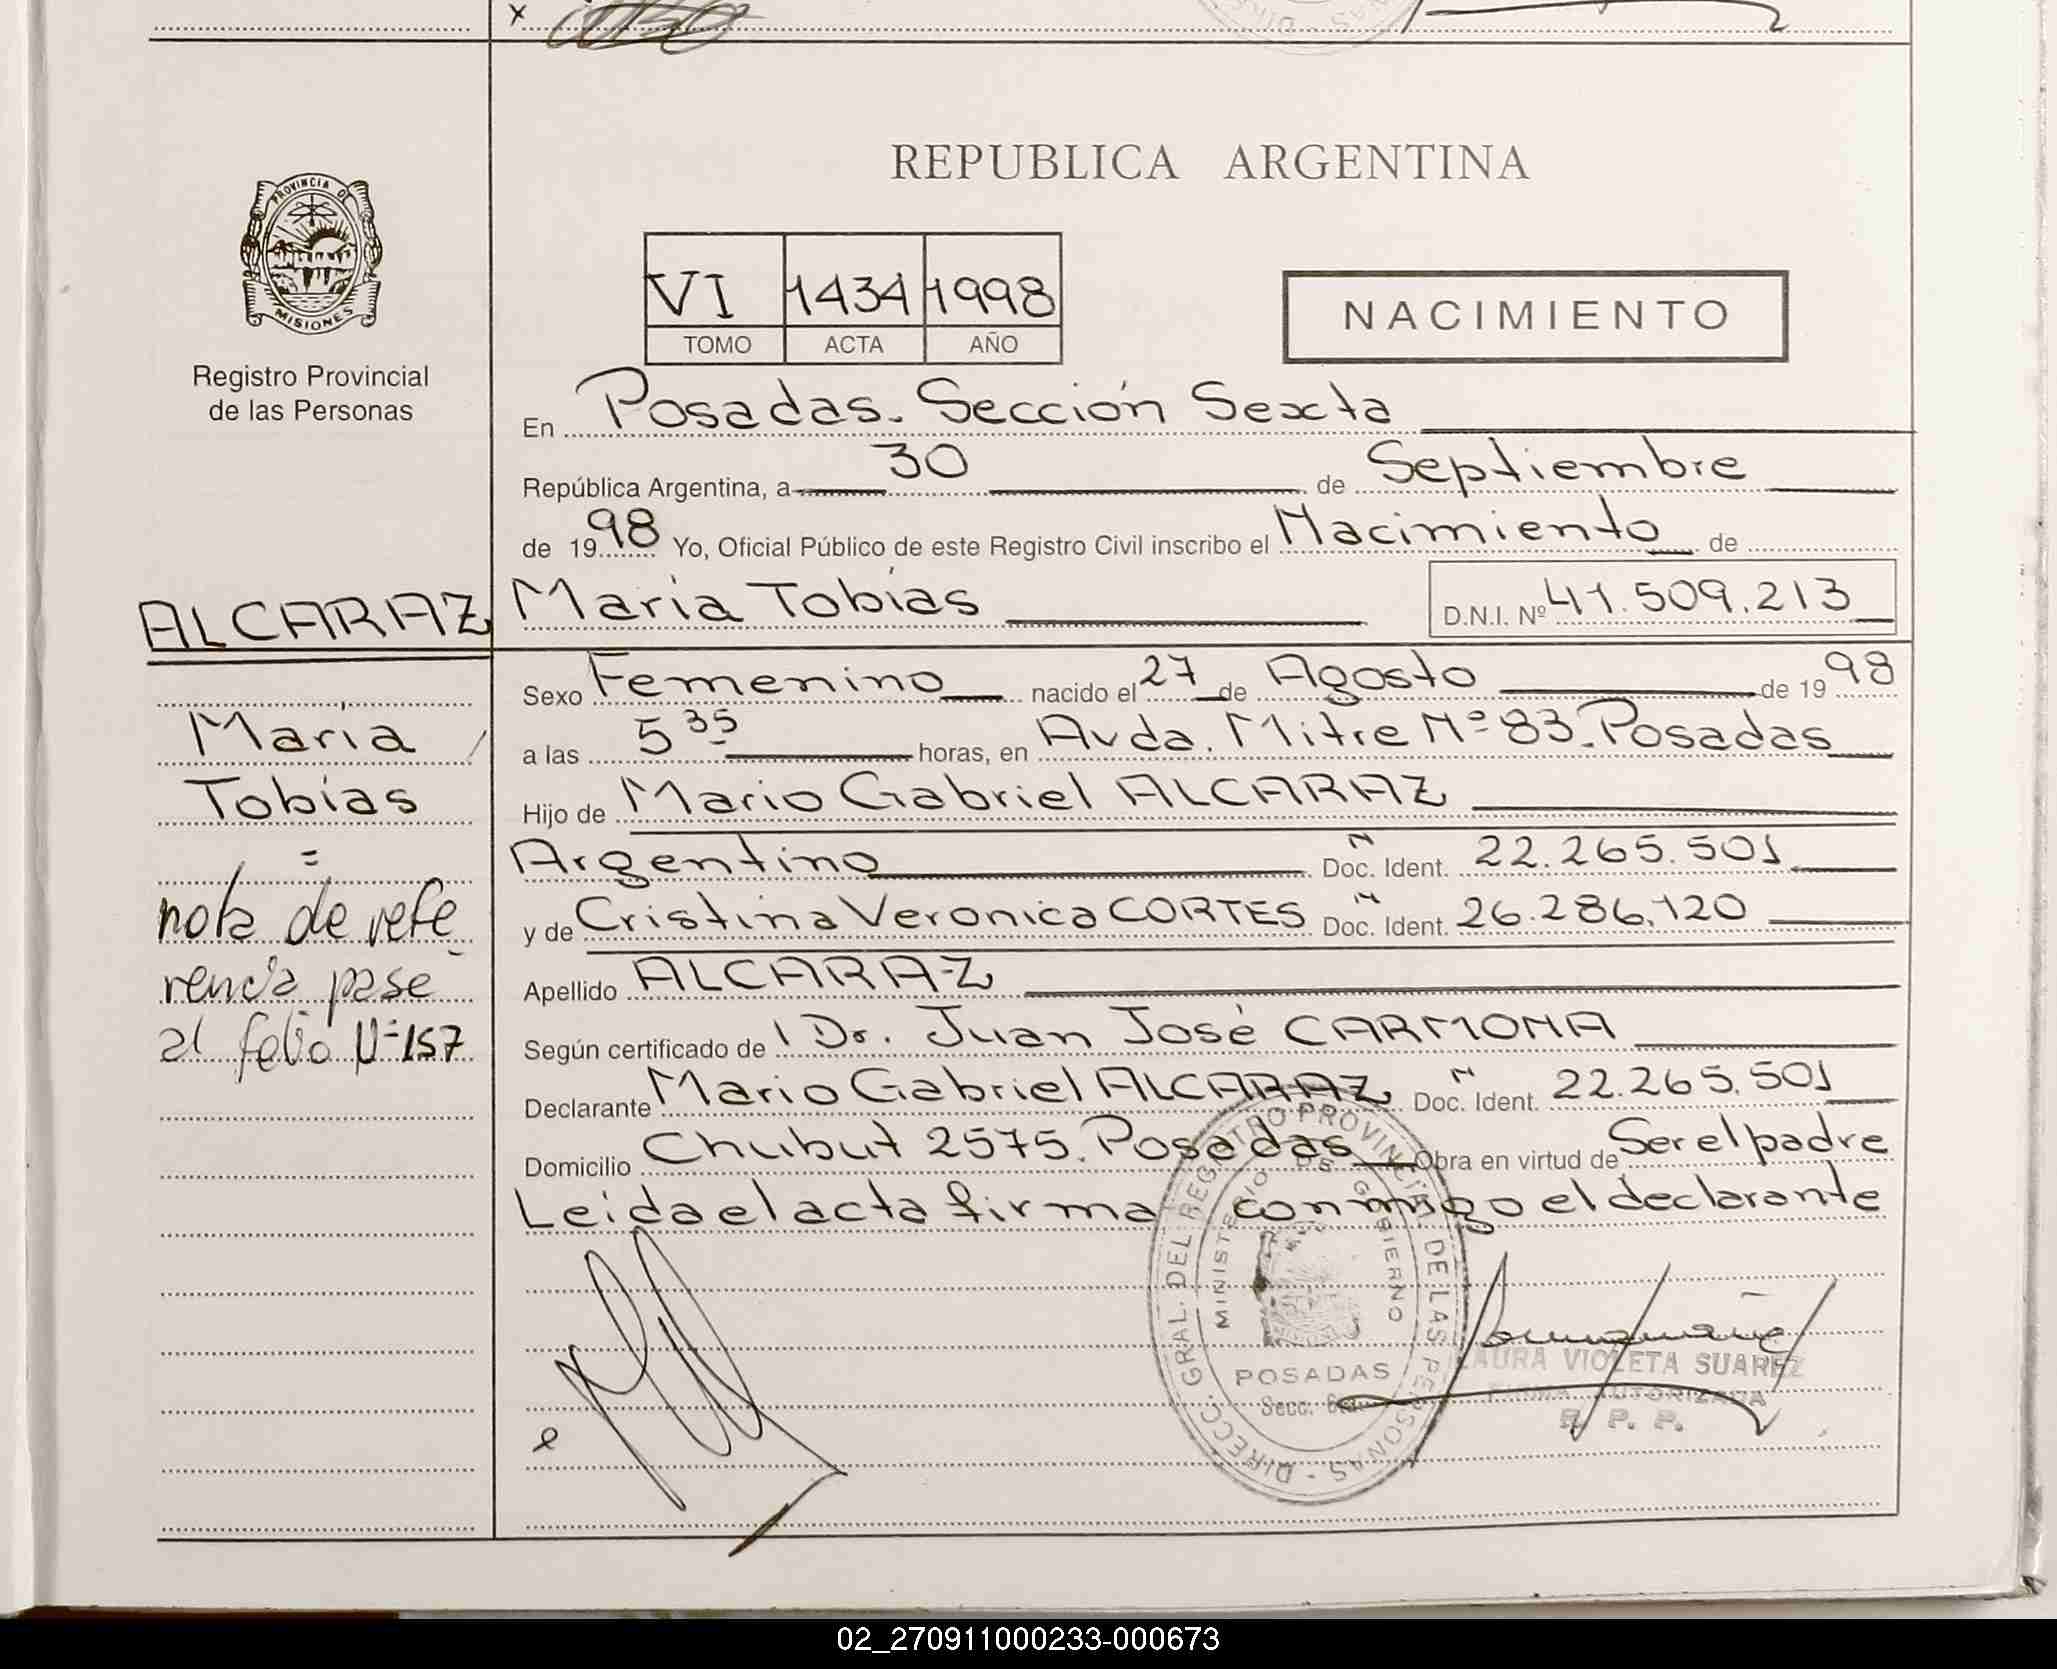 x
REPUBLICA ARGENTINA
PROVINCIA DE
MISIONES
Registro Provincial
de las Personas
VI 1434 1998
TOMO ACTA AÑO
NACIMIENTO
En Posadas. Sección Sexta
República Argentina, a 30 de Septiembre
de 1998 Yo, Oficial Público de este Registro Civil inscribo el Nacimiento de
ALCARAZ María Tobías D.N.I. Nº 41.509.213
Sexo Femenino nacido el 27 de Agosto de 1998
María
a las 5 35 horas, en Avda. Mitre Nº 83. Posadas
Tobías
Hijo de Mario Gabriel ALCARAZ
Argentino Doc. Ident. N 22.265.501
nota de refe
y de Cristina Veronica CORTES Doc. Ident. N 26.286.120
rencia pase
Apellido ALCARAZ
al folio Nº 157
Según certificado de Dr. Juan José CARMONA
Declarante Mario Gabriel ALCARAZ Doc. Ident. N 22.265.501
Domicilio Chubut 2575. Posadas Obra en virtud de Ser el padre
Leida el acta firma conmigo el declarante
DIRECC. GRAL. DEL REGISTRO PROVINCIAL DE LAS PERSONAS
MINISTERIO DE GOBIERNO
POSADAS
Secc. 6ta.
LAURA VIOLETA SUAREZ
FIRMA AUTORIZADA
R. P. P.
02_270911000233-000673